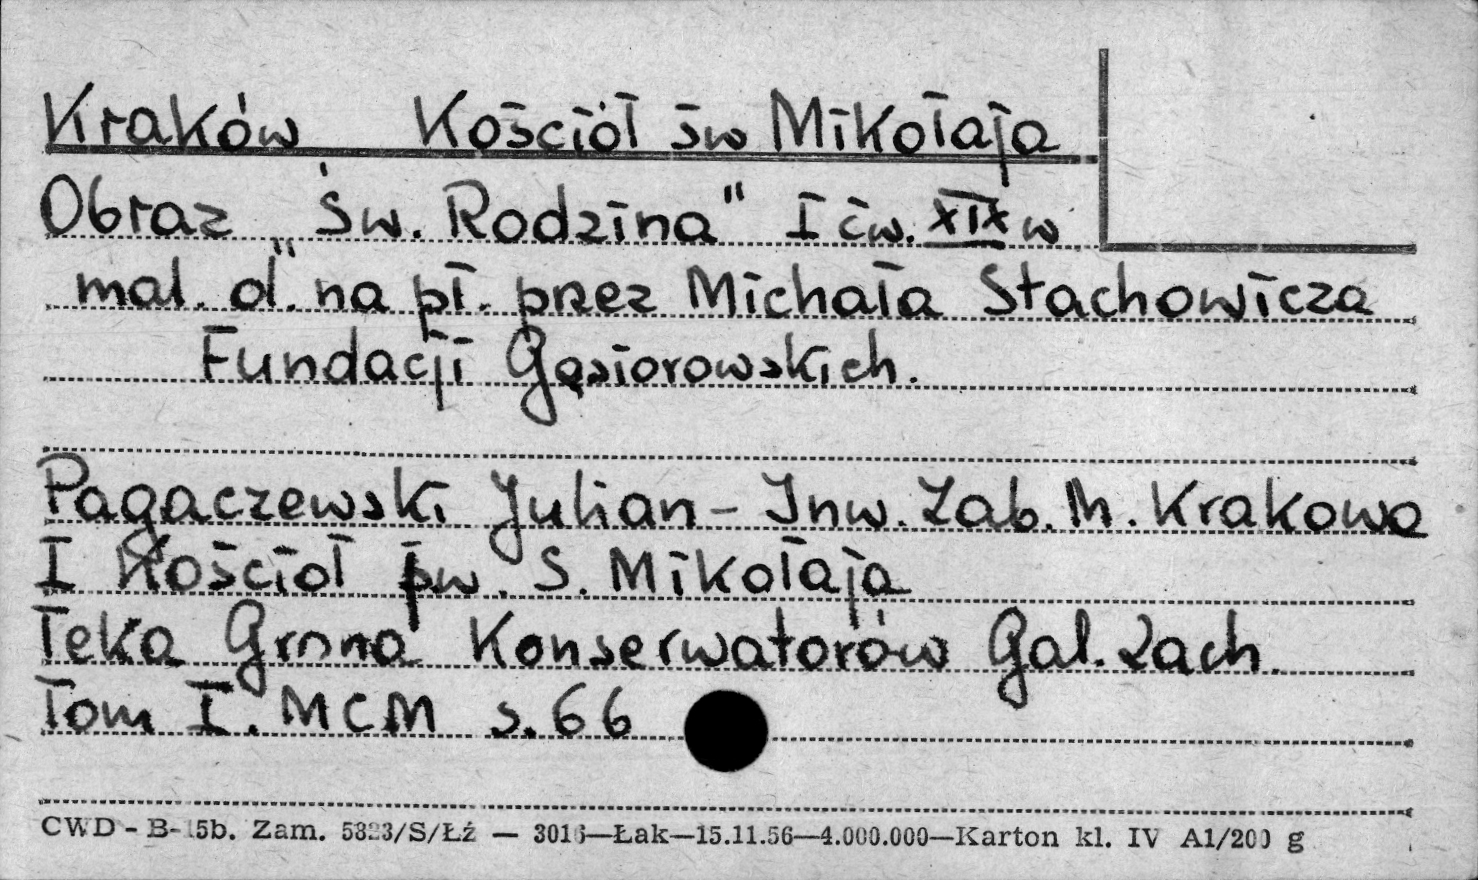 Kraków Kościół św Mikołaja
Obraz „Św. Rodzina" I ćw. XIX w
mal. ol. na pł. przez Michała Stachowicza
Fundacji Gąsiorowskich.
Pagaczewski Julian - Inw. Zab. M. Krakowa
I Kościoł pw. S. Mikołaja
Teka Grona Konserwatorów Gal. Zach.
Tom I. MCM s. 66
CWD - B-15b. Zam. 5323/S/Łź — 3016—Łak—15.11.56—4.000.000—Karton kl. IV A1/200 g